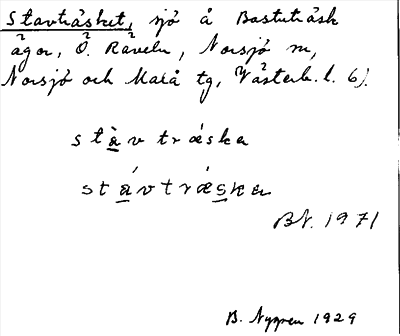 Stavträsket, sjö å Bastuträsk
ägor, Ö. Råveln, Norsjö sn,
Norsjö och Malå tg, Västerb. l. 6).
stàv træska
stávtræska
BN. 1971
B. Nygren 1929